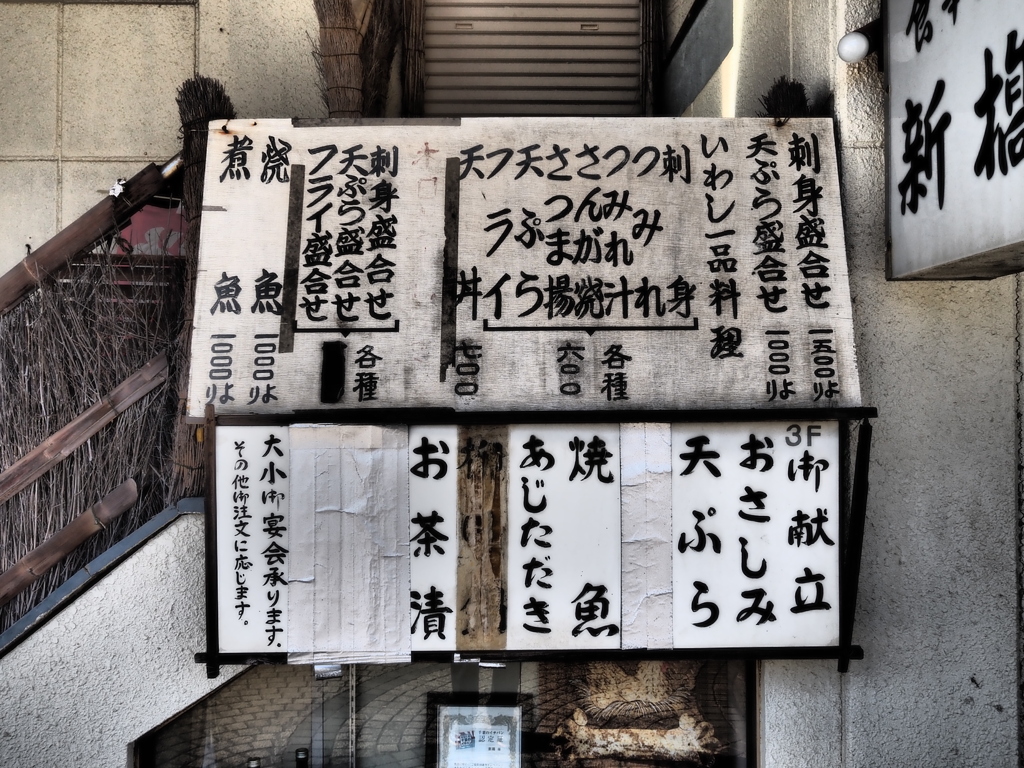 新橋
刺身盛合せ 一五〇〇より
天ぷら盛合せ 一〇〇〇より
いわし一品料理
刺身
つみれ
つみれ汁
さんが焼
さつま揚
天ぷら
フライ
各種 六〇〇
天丼 七〇〇
刺身盛合せ
天ぷら盛合せ
フライ盛合せ
各種
焼魚 一〇〇〇より
煮魚 一〇〇〇より
3F
御献立
おさしみ
天ぷら
焼魚
あじただき
お茶漬
大小御宴会承ります。
その他御注文に応じます。
認定証